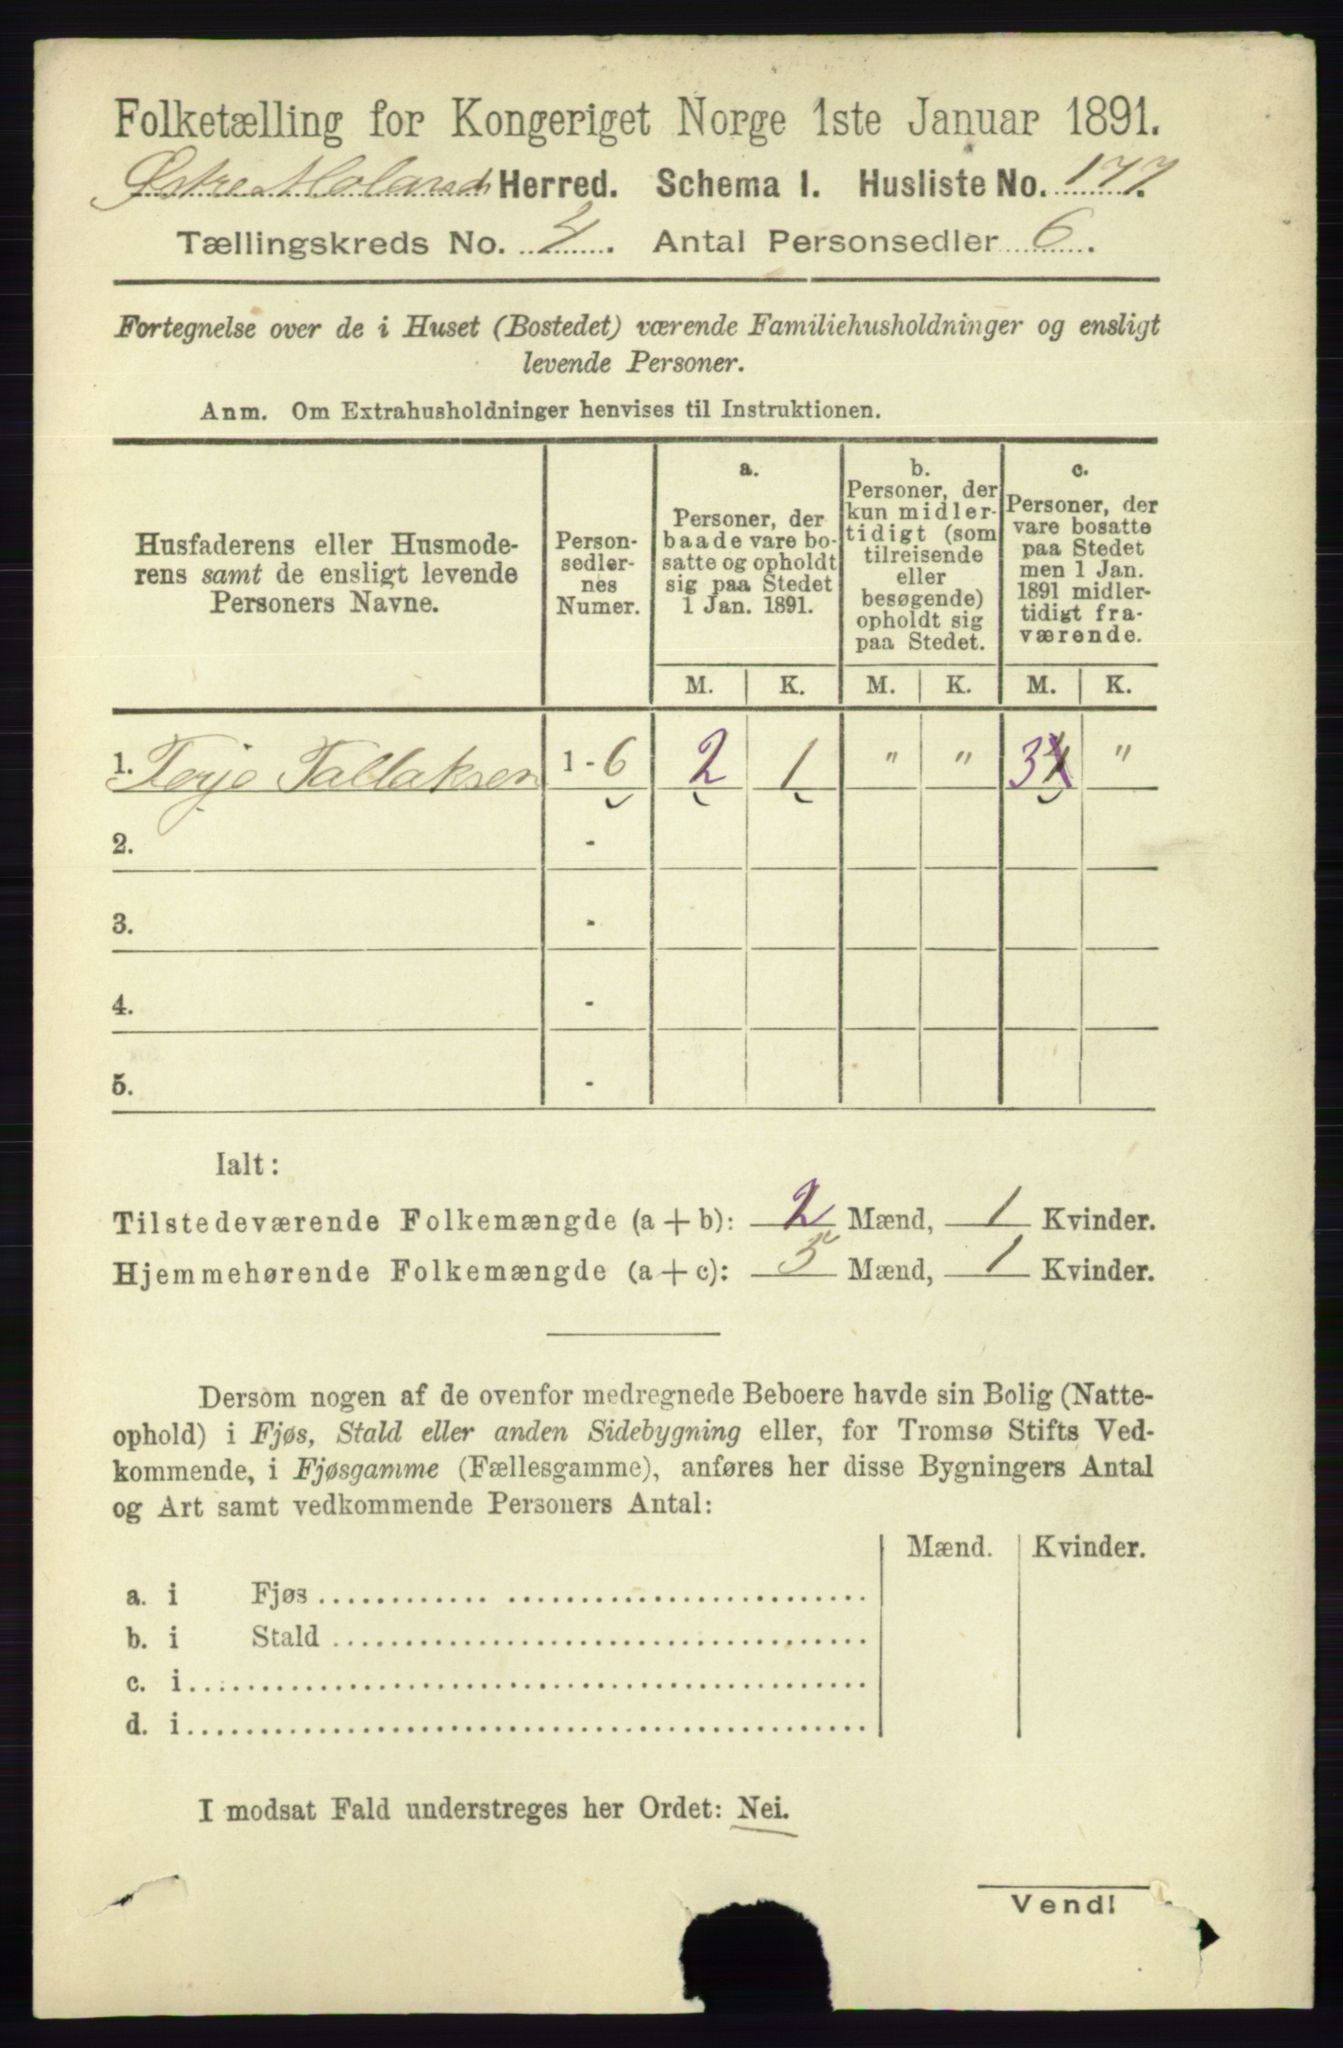 Folketælling for Kongeriget Norge 1ste Januar 1891.
Østre Molands Herred. Schema 1. Husliste No. 177.
Tællingskreds No. 4. Antal Personsedler 6.
Fortegnelse over de i Huset (Bostedet) værende Familiehusholdninger og ensligt
levende Personer.
Anm. Om Extrahusholdninger henvises til Instruktionen.
Husfaderens eller Husmode-
rens samt de ensligt levende
Personers Navne.
Person-
sedler-
nes
Numer.
a.
Personer, der
baade vare bo-
satte og opholdt
sig paa Stedet
1 Jan. 1891.
b.
Personer, der
kun midler-
tidigt (som
tilreisende
eller
besøgende)
opholdt sig
paa Stedet.
c.
Personer, der
vare bosatte
paa Stedet
men 1 Jan.
1891 midler-
tidigt fra-
værende.
M. K. M. K. M. K.
1. Terje Tallaksen 1 - 6 2 1 " " 3 "
2. -
3. -
4. -
5. -
Ialt:
Tilstedeværende Folkemængde (a + b): 2 Mænd, 1 Kvinder.
Hjemmehørende Folkemængde (a + c): 5 Mænd, 1 Kvinder.
Dersom nogen af de ovenfor medregnede Beboere havde sin Bolig (Natte-
ophold) i Fjøs, Stald eller anden Sidebygning eller, for Tromsø Stifts Ved-
kommende, i Fjøsgamme (Fællesgamme), anføres her disse Bygningers Antal
og Art samt vedkommende Personers Antal:
Mænd. Kvinder.
a. i Fjøs
b. i Stald
c. i
d. i
I modsat Fald understreges her Ordet: Nei.
Vend!